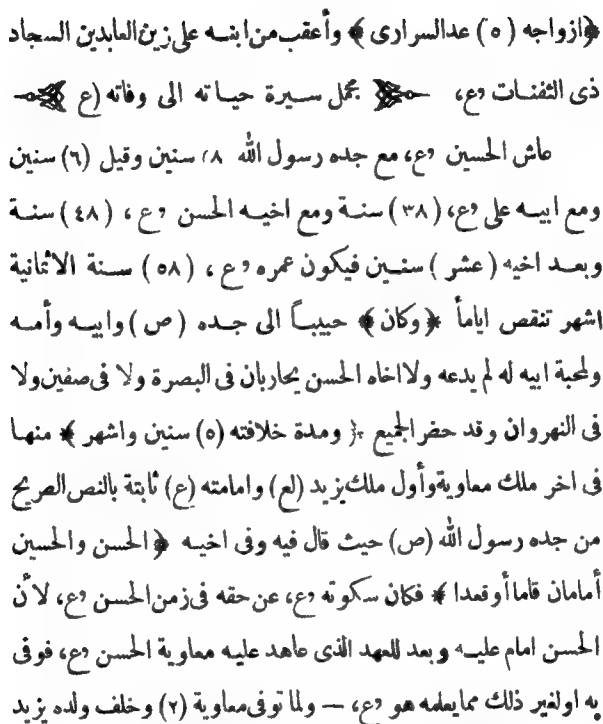 ﴿ازواجه (٥) عدالسرارى﴾ وأعقب من ابنه على زين العابدين السجاد
ذى الثفنات «ع»، مجمل سيرة حياته الى وفاته (ع)
عاش الحسين «ع» مع جده رسول الله ٨ سنين وقيل (٦) سنين
ومع ابيه على «ع»، (٣٨) سنة ومع اخيه الحسن «ع»، (٤٨) سنة
وبعد اخيه (عشر) سنين فيكون عمره «ع»، (٥٨) سنة الاثمانية
اشهر تنقص اياماً ﴿وكان﴾ حبيباً الى جده (ص) وابيه وأمه
ولمحبة ابيه له لم يدعه ولااخاه الحسن يحاربان فى البصرة ولا فى صفين ولا
فى النهروان وقد حضر الجميع ﴿ومدة خلافته (٥) سنين واشهر﴾ منها
فى اخر ملك معاوية وأول ملك يزيد (لع) وامامته (ع) ثابتة بالنص الصريح
من جده رسول الله (ص) حيث قال فيه وفى اخيه ﴿الحسن والحسين
أمامان قاما أو قعدا﴾ فكان سكوته «ع»، عن حقه فى زمن الحسن «ع»، لأن
الحسن امام عليه وبعد للعهد الذى عاهد عليه معاوية الحسن «ع»، فوفى
به اولغير ذلك مما يعلمه هو «ع»، — ولما توفى معاوية (٢) وخلف ولده يزيد